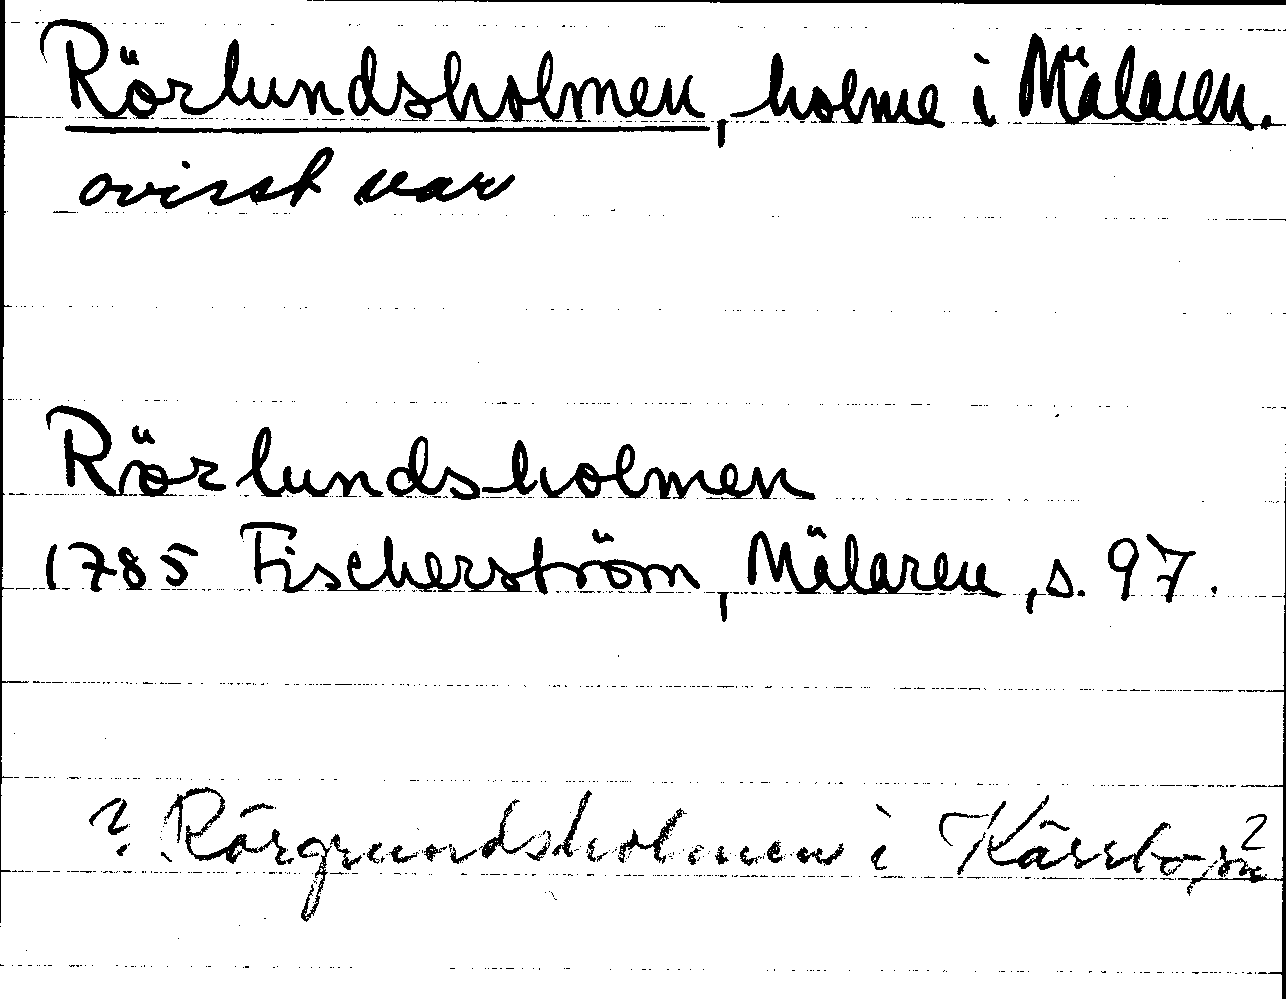 Rörlundsholmen, holme i Mälaren.
ovisst var
Rörlundsholmen
1785 Fischerström, Mälaren, s. 97.
? Rörgrundsholmen i Kärrbo sn?